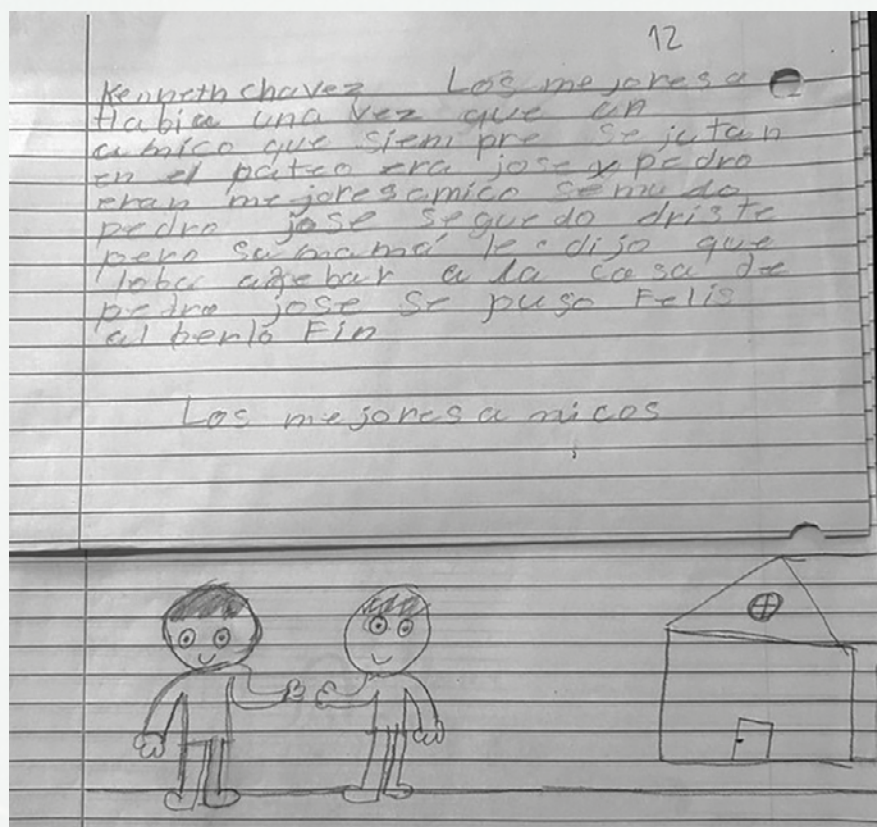 12
Kenneth Chavez Los mejores a
Habia una vez que un
amico que siem pre se jutan
en el pateo era jose y pedro
eran mejores amico se mudo
pedro jose se quedo driste
pero sa mamá le dijo que
loba a a la casa de
pedro jose se puso Felis
al berlo Fin
Los mejores a micos